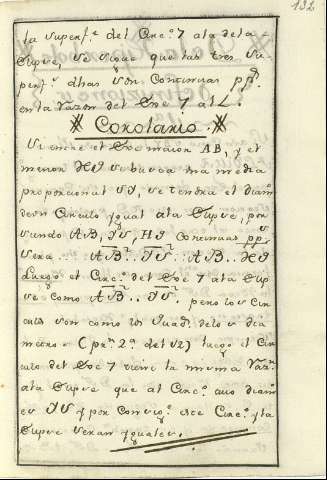 132
la superf.e del Circ.o 7 ala dela
supve, se sigue que las tres su-
perf.s dhas son continuas pp.s
en la razon del Exe 7 al L.
Corolario
Si entre el Exe maior AB, y el
menor HI se busca una media
proporcional SI, se tendra el diam.
de un Circulo ygual ala Supve, por
siendo AB, SI, HI continuas pp.s
sera AB.. SI.. AB.. HI
luego el Circ.o del Exe 7 ala sup
ve como AB.. SI. pero los Cir
culos son como los quad.s delos dia
metros (p.r 2.a del 12) luego el Cir
culo del Exe 7 tiene la misma raz.n
ala Supve que al Circ.o cuio diam.
es SI y por consig.e este Circ.o y la
supve seran yguales.